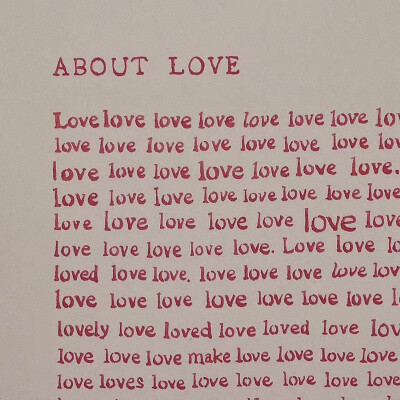 ABOUT LOVE
Love love love love love love love lov
love love love love love love love love
love love love love love love love.
love love love love love love love love
love love love love love love love
love love love love love. Love love lo
loved love love. love love love love lov
love love love love love love love l
lovely love loved love loved love lov
love love love make love love love love
love loves love love love love love love